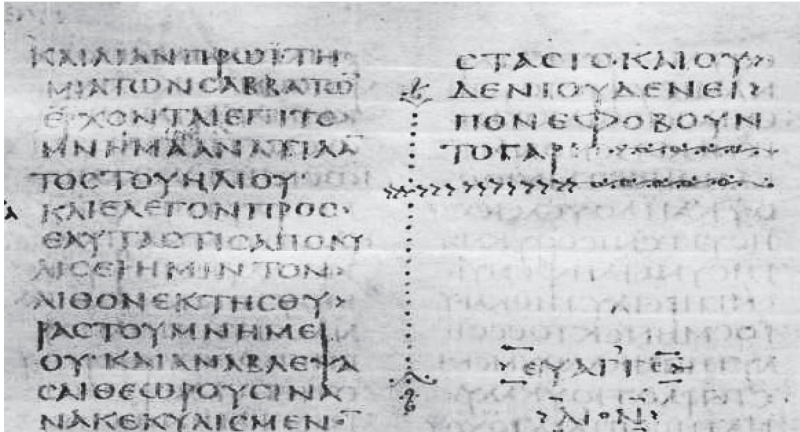 ΚΑΙΛΙΑΝΠΡΩΙΤΗ
ΜΙΑΤΩΝϹΑΒΒΑΤΩ̅
ΕΡΧΟΝΤΑΙΕΠΙΤΟ
ΜΝΗΜΑΑΝΑΤΙΛΑ̅
ΤΟϹΤΟΥΗΛΙΟΥ·
ΚΑΙΕΛΕΓΟΝΠΡΟϹ·
ΕΑΥΤΑϹΤΙϹΑΠΟΚΥ
ΛΙϹΕΙΗΜΙΝΤΟΝ>
ΛΙΘΟΝΕΚΤΗϹΘΥ>
ΡΑϹΤΟΥΜΝΗΜΕΙ
ΟΥ·ΚΑΙΑΝΑΒΛΕΨΑ
ϹΑΙΘΕΩΡΟΥϹΙΝΑ
ΝΑΚΕΚΥΛΙϹΜΕΝΟ̅
ϹΤΑϹΙϹ·ΚΑΙΟΥ>
ΔΕΝΙΟΥΔΕΝΕΙ>
ΠΟΝΕΦΟΒΟΥΝ
ΤΟΓΑΡ·
ΕΥΑΓΓΕ
ΛΙΟΝ